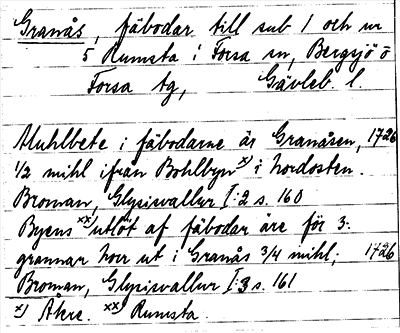 Granås, fäbodar till sub 1 och nr
5 Rumsta i Forsa sn, Bergsjö o
Forsa tg, Gävleb. l.
Muhlbete i fäbodarne är Granåsen, 1726
1/2 mihl ifrån Bohlbyn x) i nordosten.
Broman, Glysisvallur I:2 s. 160
Byens xx) utlöt af fäbodar äre för 3:
grannar horr ut i Granås 3/4 mihl; 1726
Broman, Glysisvallur I:3 s. 161
x) Åkre. xx) Rumsta.